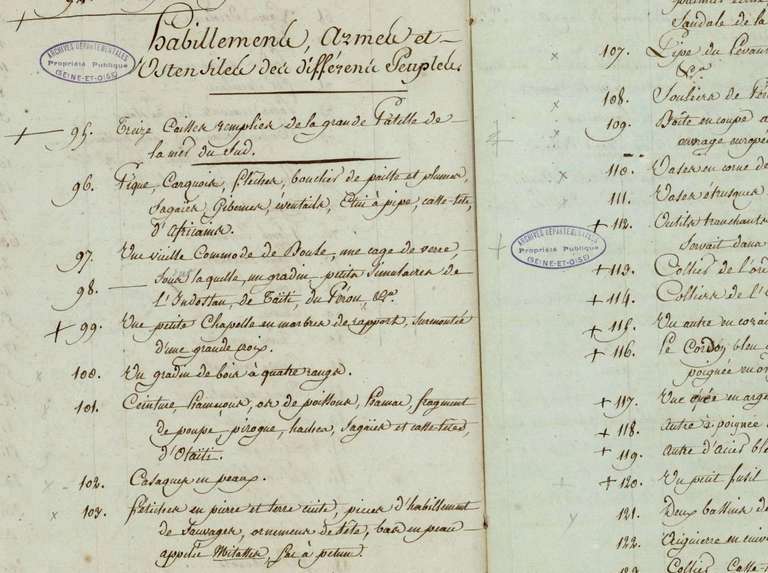 Habillemens, Armes et
Ustensiles des différens Peuples.
ARCHIVES DÉPARTEMENTALES
Propriété Publique
(SEINE-ET-OISE)
95. Treize Caisses remplies de la grande Pétille de
la mer du Sud.
96. Pique, Carquois, flèches, bouclier de peille et plumes,
Sagaïes, Gibernes, éventails, Etui à pipe, casse-tête,
d'Africains.
97. Une vieille Commode de Boule, une cage de verre,
98. — sous laquelle, un gradin, petits simulacres de
l'Indostan, de Taïti, du Pérou, &c.
99. Une petite Chapelle en marbre de rapport, surmontée
d'une grande croix.
100. Un gradin de bois à quatre rangs.
101. Ceinture, hameçons, os de poissons, hamac, fragment
de poupe, pirogue, haches, Sagaïes et casse-têtes,
d'Otaïti.
102. Casaques en peaux.
103. Fétiches en pierre et terre cuite, pièces d'habillement
de Sauvages, ornemens de tête, bas en peau
appelés Mitasses, Sac à petun.
Sandale de la
107. Pipe du Levant
&c.
108. Souliers de
109. Boîte en coupe
ouvrage europé
110. Vases en corne de
111. Vases étrusques
112. Outils tranchants
servait dans
ARCHIVES DÉPARTEMENTALES
Propriété Publique
(SEINE-ET-OISE)
113. Collier de l'or
114. Colliers de l'
115. Un autre en
116. Le Cordon bleu
poignée en or
117. Une épée en argen
118. autre à poignée
119. autre d'acier ble
120. Un petit fusil
121. Deux bassins de
122. Aiguierre en cuiv
123. Collier Casse-t